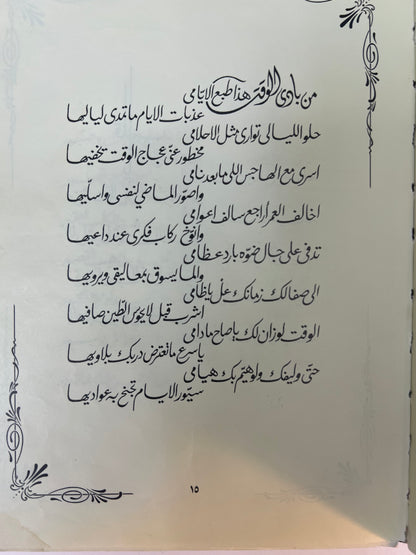 من بادي الوقت هذا طبع الايامي
عذبات الايام ما تمدى لياليها
حلو الليالي توارى مثل الاحلامي
مخطور عنّي عجاج الوقت يخفيها
اسري مع الهاجس اللي ما بعد نامي
واصوّر الماضي لنفسي واسلّيها
اخالف العمر اراجع سالف اعوامي
وانوّخ ركاب فكري عند داعيها
تدفى على جال ضوّه بارد عظامي
والما يسوق بمعاليقي ويرويها
الى صفالك زمانك علّ ياظامي
اشرب قبل لا يحوس الطّين صافيها
الوقت لو زان لك ياصاح ما دامي
يا سرع ما تعترض دربك بلاويها
حتّى وليفك ولو هيّم بك هيامي
سيّور الايام تجنح به عواديها
١٥